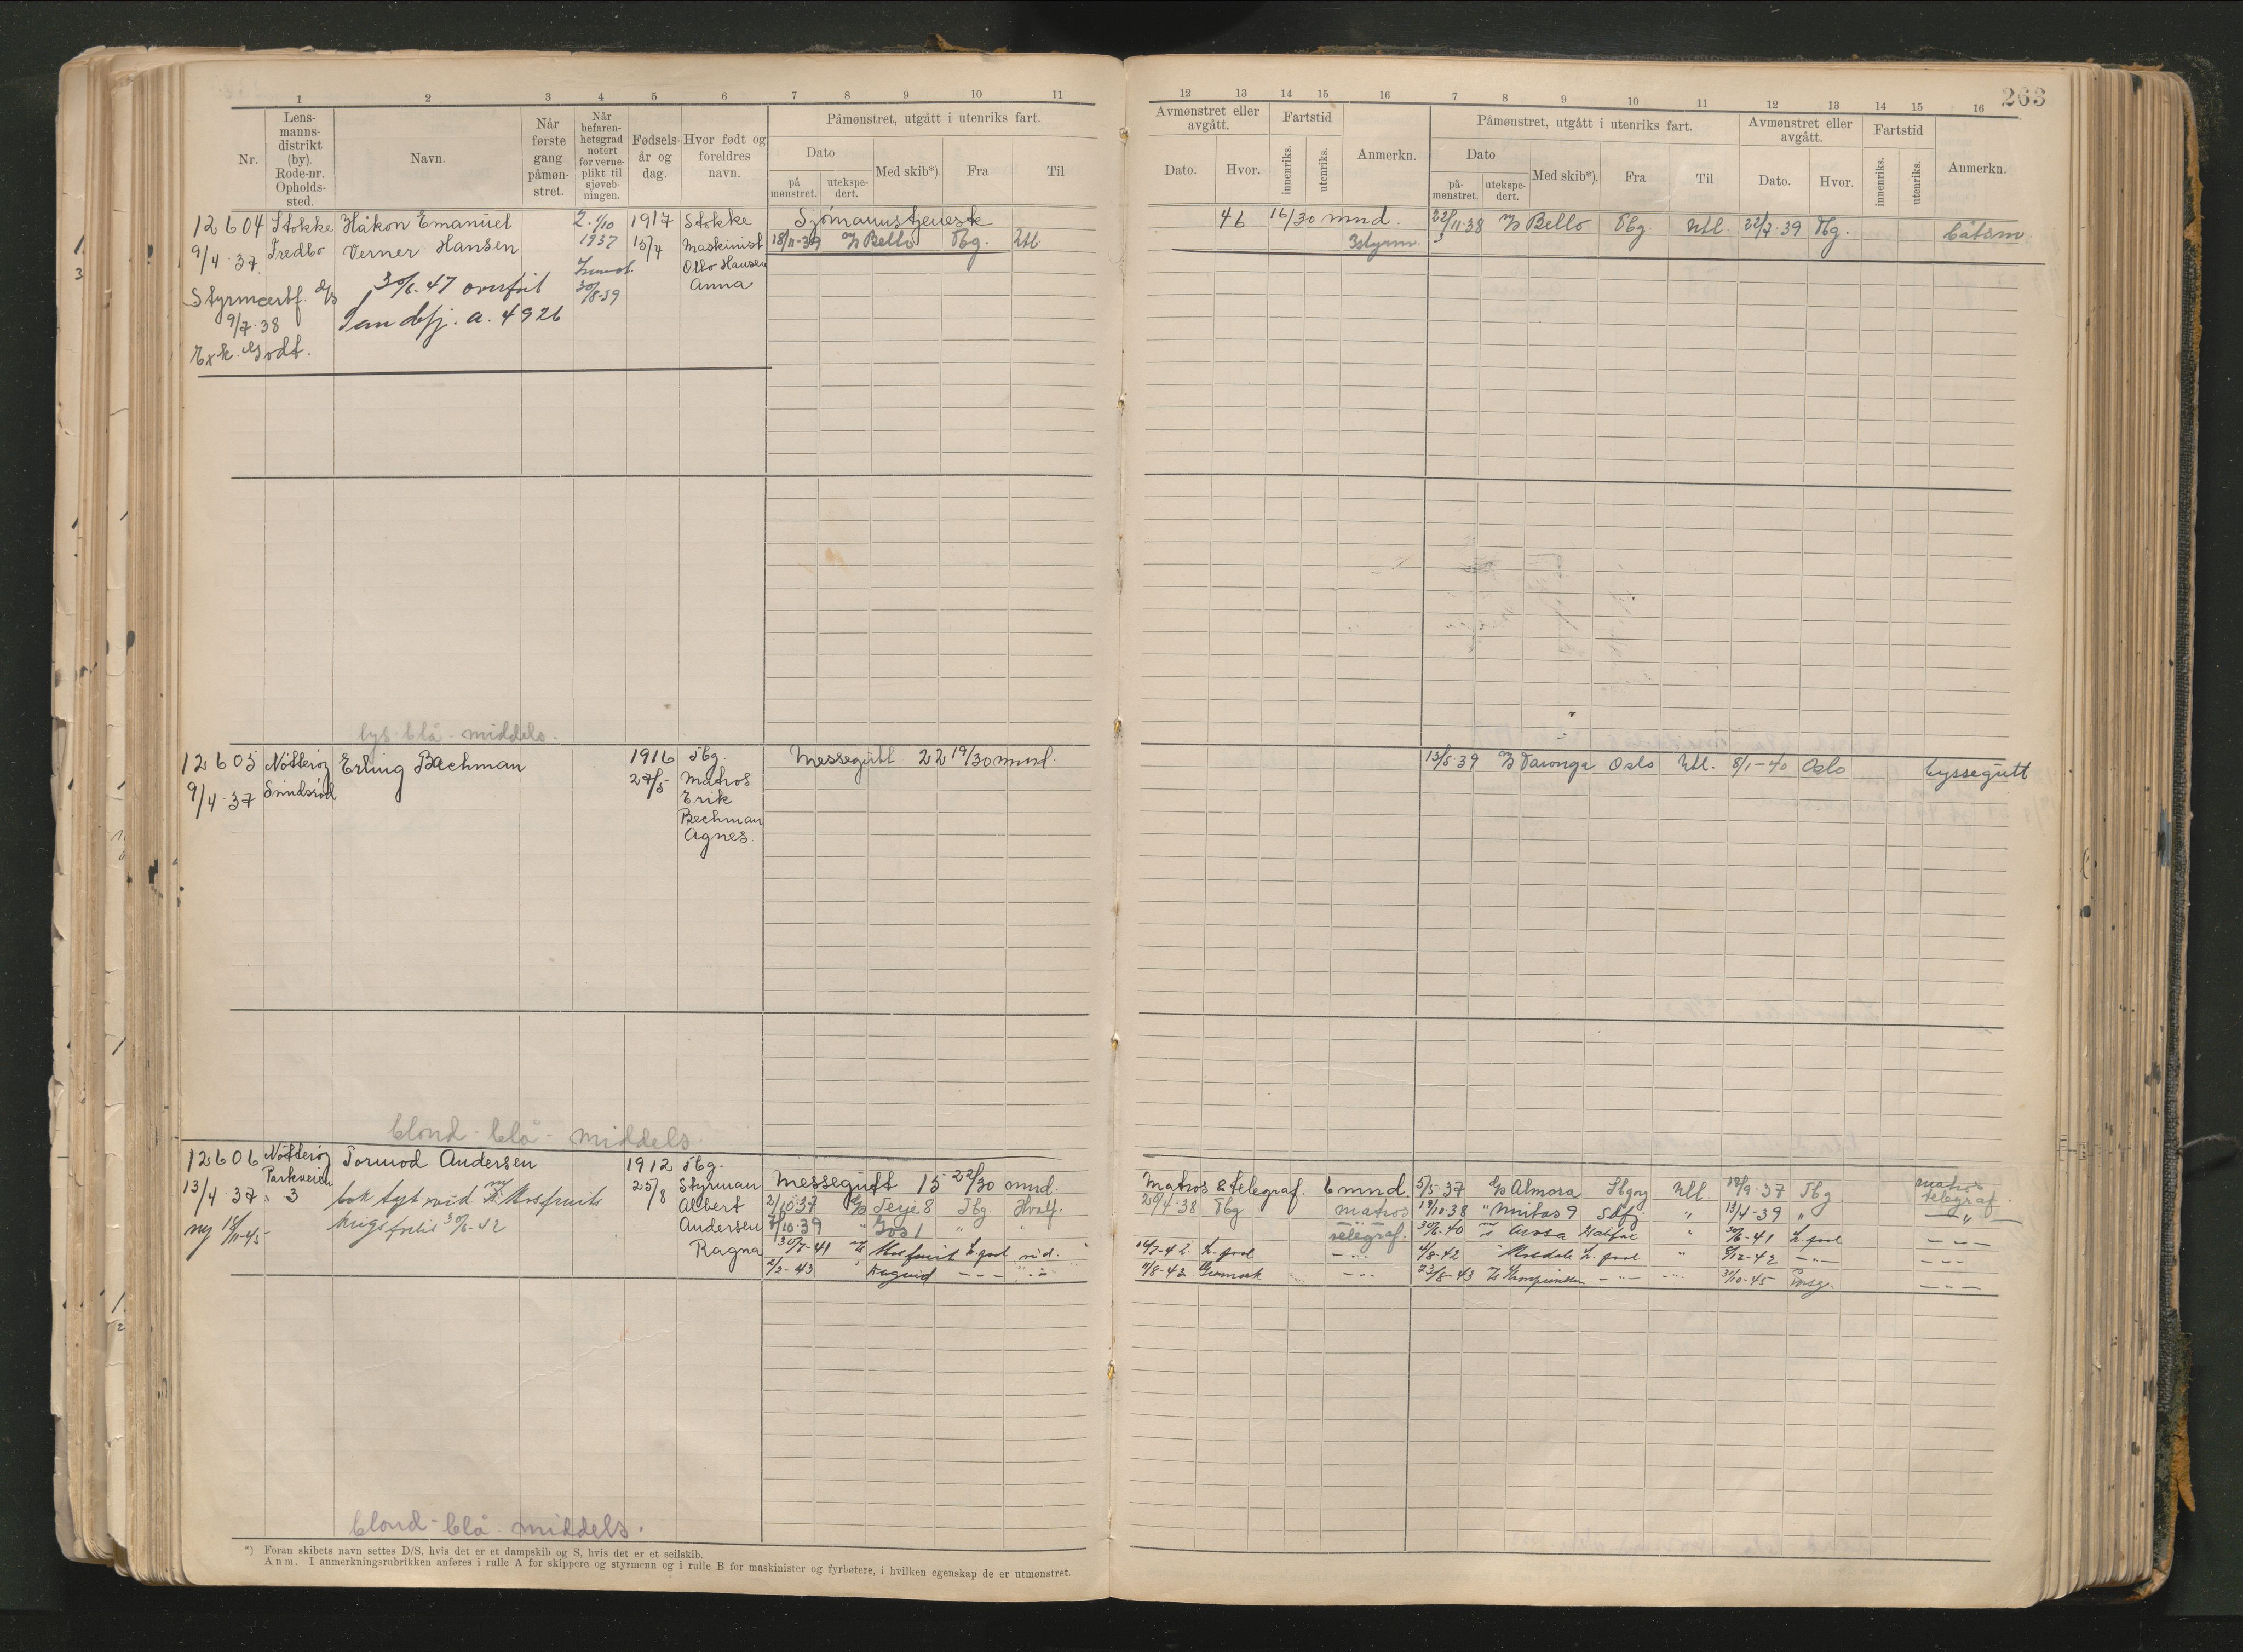 263
1 2 3 4 5 6 7 8 9 10 11
12 13 14 15 16 7 8 9 10 11 12 13 14 15 16
Nr.
Lens-
manns-
distrikt
(by).
Rode-nr.
Opholds-
sted.
Navn.
Når
første
gang
påmøn-
stret.
Når
befaren-
hetsgrad
notert
for verne-
plikt til
sjøveb-
ningen.
Fødsels-
år og
dag.
Hvor født og
foreldres
navn.
Påmønstret, utgått i utenriks fart.
Dato
på
mønstret.
utekspe-
dert.
Med skib*).
Fra
Til
Avmønstret eller
avgått.
Dato.
Hvor.
Fartstid
innenriks.
utenriks.
Anmerkn.
Påmønstret, utgått i utenriks fart.
Dato
på-
mønstret.
utekspe-
dert.
Med skib*).
Fra
Til
Avmønstret eller
avgått.
Dato.
Hvor.
Fartstid
innenriks.
utenriks.
Anmerkn.
12604 Stokke Håkon Emanuel 2. 1/10 1917 Stokke Sjømannstjeneste 46 16/30 mnd. 22/11-38 m/s Bello Tbg. Utl. 22/7-39 Tbg. båtsm.
9/4-37. Fredbo Verner Hansen 1937 15/4 Maskinist 18/11-39 m/s Bello Tbg. Utl. 3styrm.
Otto Hansen
30/8-39 Anna
Styrmcertf. d/s 30/6.47 overført
9/7-38 Sandefj. a. 4926
Exk. Godt.
lys-blå-middels.
12605 Nøtterøy Erling Bachman 1916 Tbg. Messegutt 22 19/30 mnd. 13/5-39 m/s Taronga Oslo Utl. 8/1-40 Oslo byssegutt
9/4-37 Smidsrød 27/5 Matros
Erik
Bechman
Agnes.
blond-blå-middels
12606 Nøtterøy Tormod Andersen 1912 Tbg.
13/4-37. Parkveien 3 25/8 Styrman Messegutt 15 22/30 mnd. Matros & telegraf. 6 mnd. 5/5-37 d/s Almora Utl. 12/9-37 Tbg matros telegraf
bok tapt ved m/s Mosfruits Albert 2/10-37 d/s Teje 8 Tbg Hvalf. 29/4-38 Tbg matros 19/10-38 " Unitas 9 Sdfj " 13/4-39 " — " —
ny 18/11-45 krigsforlis 30/6-42 Andersen 7/10-39 " Gos 1 " " telegraf. 30/6-40 m/s Arosa Halifax " 30/6-41 L.pool — " —
Ragna 30/7-41 m/s Mosfruit L.pool vid. 14/7-42 L.pool — " — 4/8-42 " Mosdale L.pool " 9/12-42 — " — — " —
2/2-43 " Kaguid — " — — " — 11/8-43 — " — 23/8-43 — " — — " — 31/10-45 — " —
blond-blå-middels.
*) Foran skibets navn settes D/S, hvis det er et dampskib og S, hvis det er et seilskib.
Anm. I anmerkningsrubrikken anføres i rulle A for skippere og styrmenn og i rulle B for maskinister og fyrbøtere, i hvilken egenskap de er utmønstret.